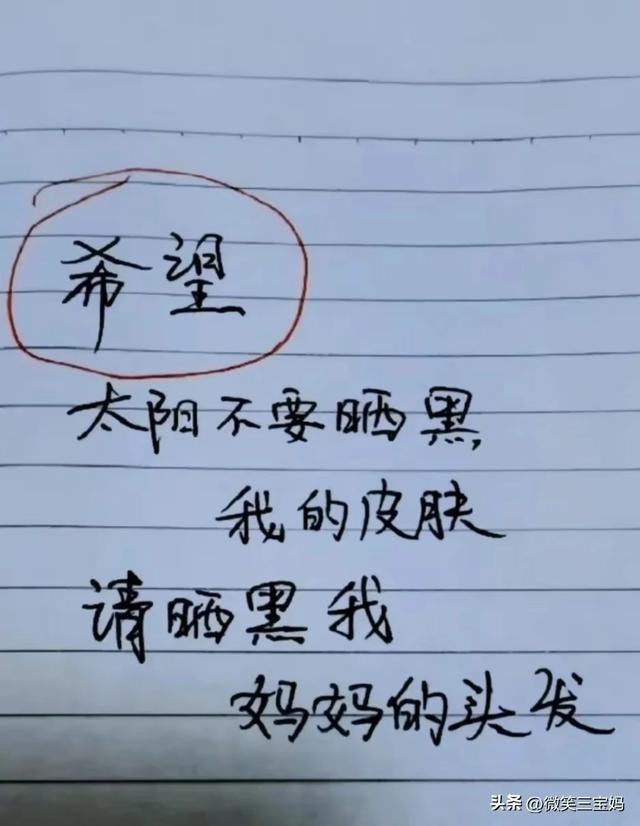 希望
太阳不要晒黑
我的皮肤
请晒黑我
妈妈的头发
头条 @微笑三宝妈